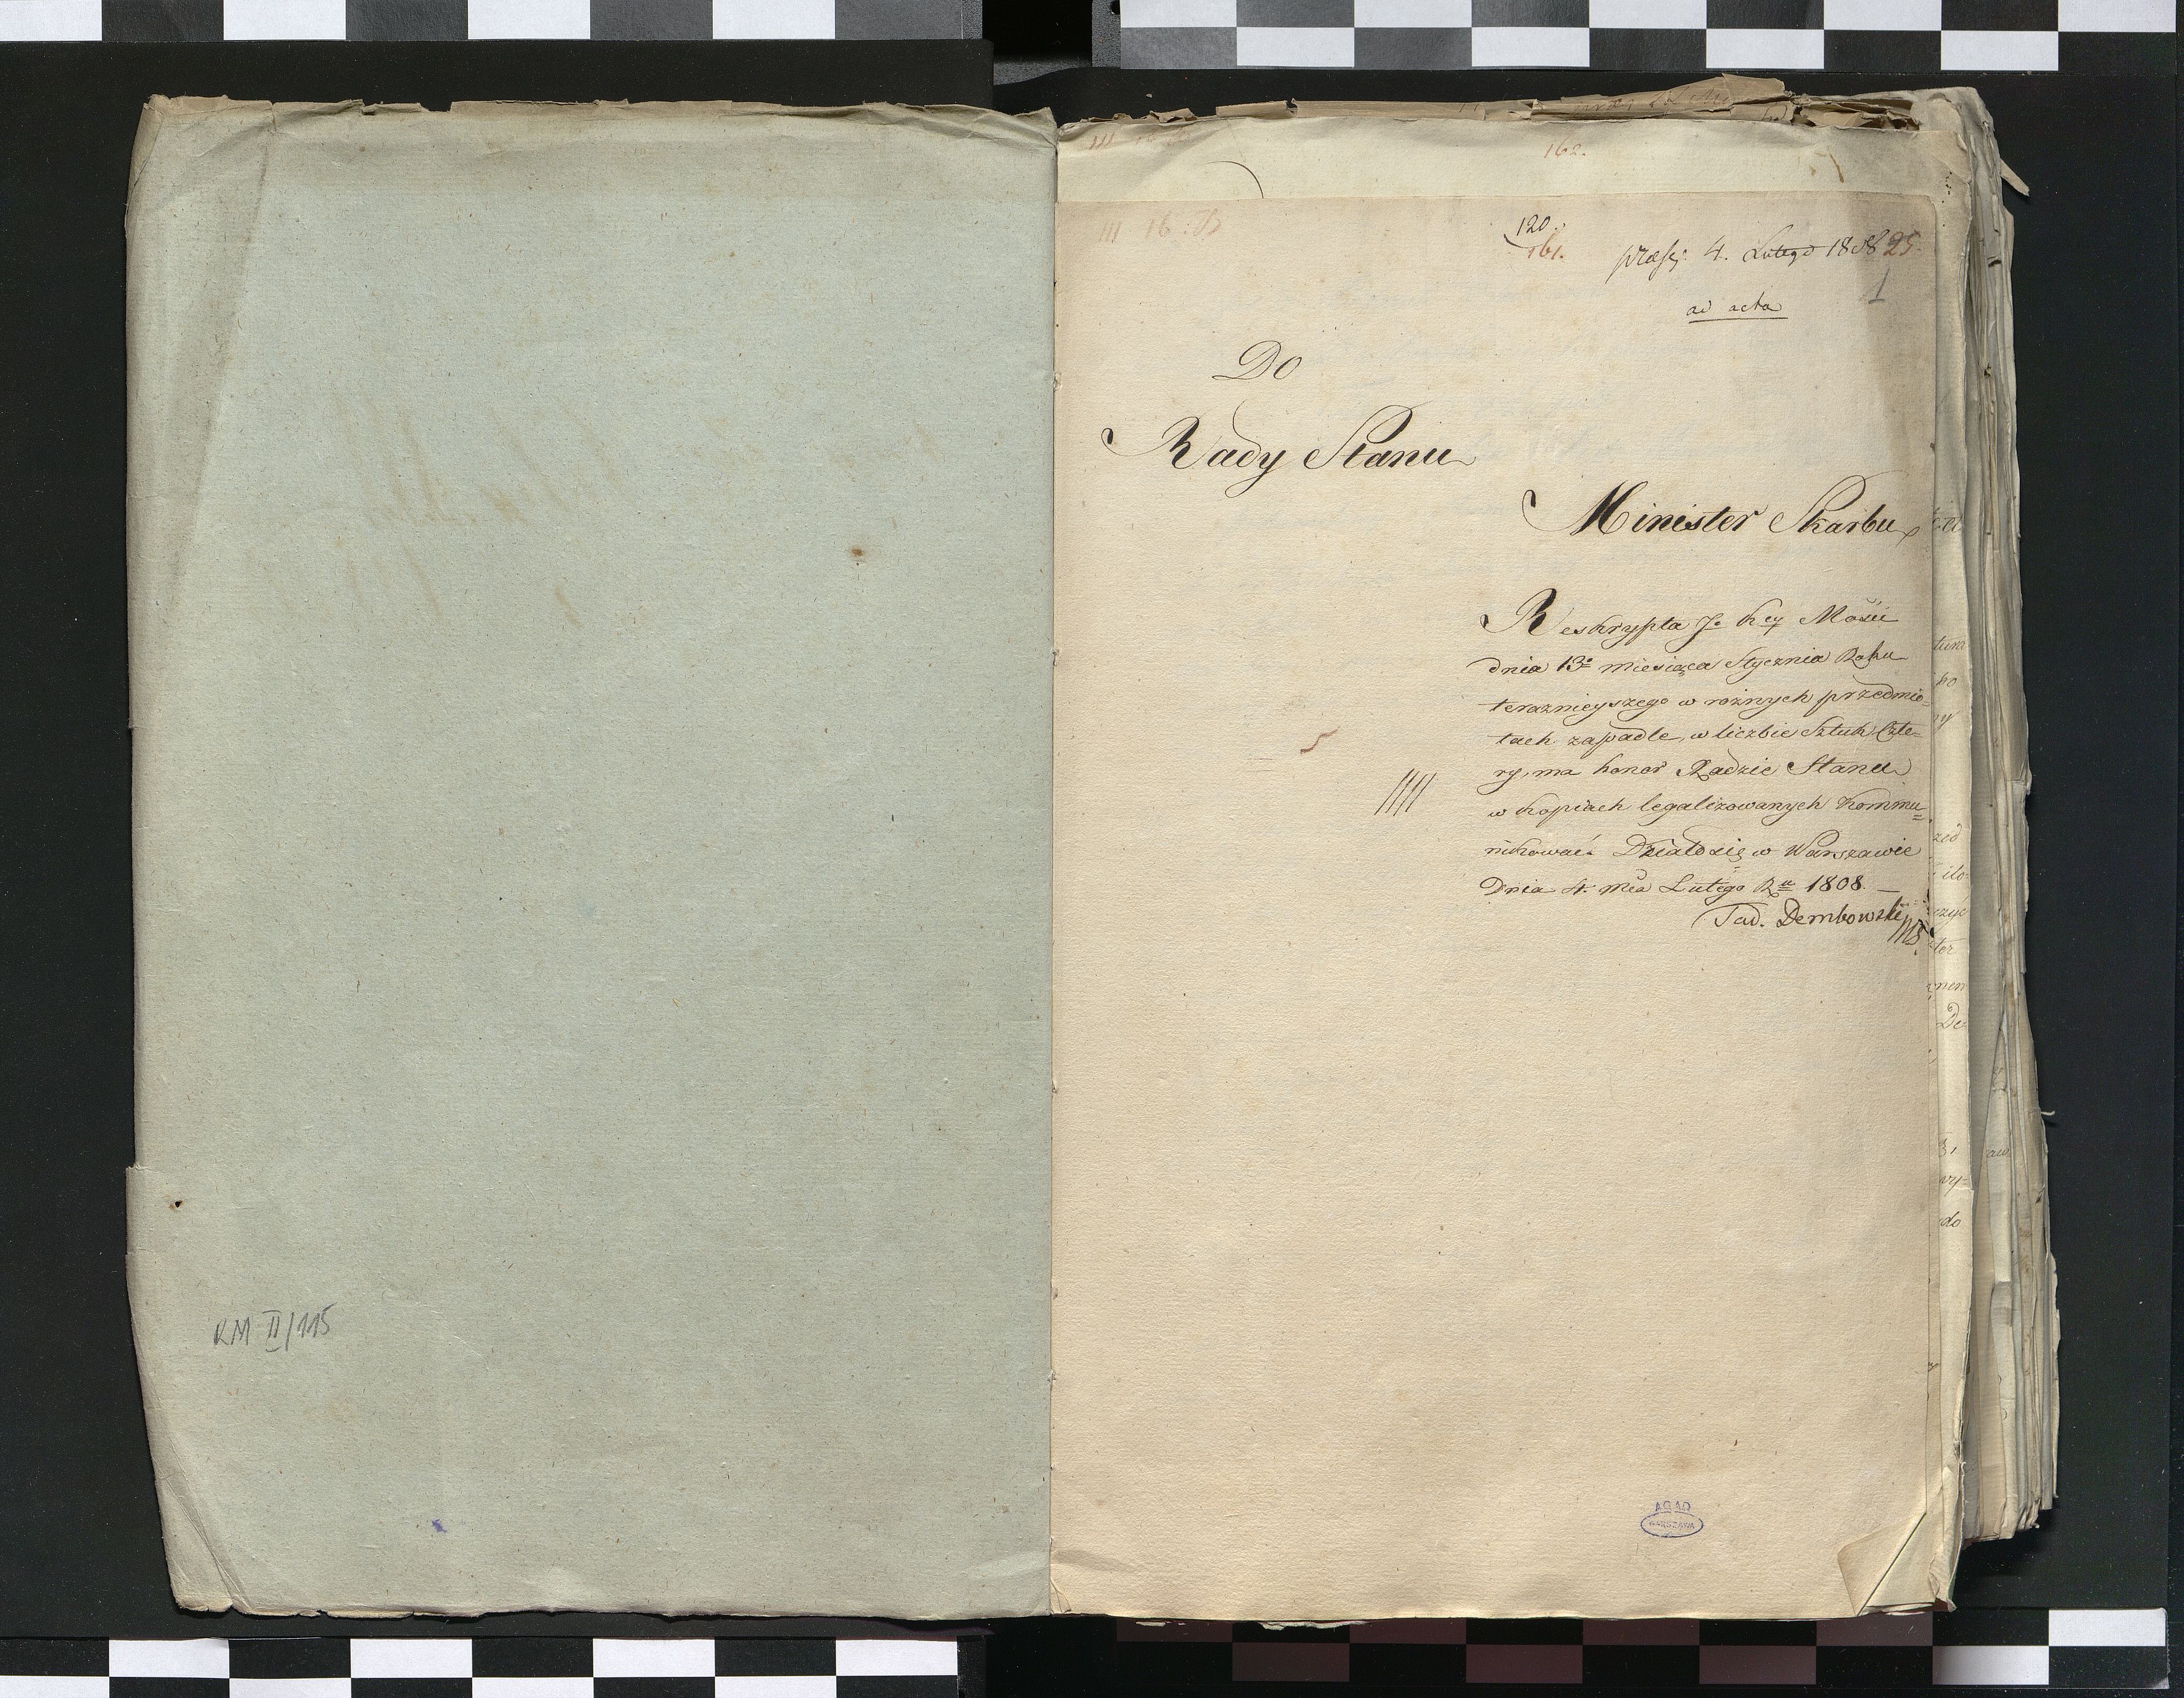 162.
III 16. B
120.
161.
præs: 4. Lutego 1808 25.
1
ad acta
Do
Rady Stanu
Minister Skarbu
Reskrypta Jo Kcy Mości
dnia 13o miesiąca Stycznia Roku
teraznieyszego w rożnych przedmio=
tach zapadłe, w liczbie Sztuk Czte=
ry, ma honor Radzie Stanu
w kopiach legalizowanych kommu=
nikować. Działo się w Warszawie
Dnia 4. mca Lutego Ru 1808. —
Tad. Dembowski MS.
RM II/115
AGAD
WARSZAWA